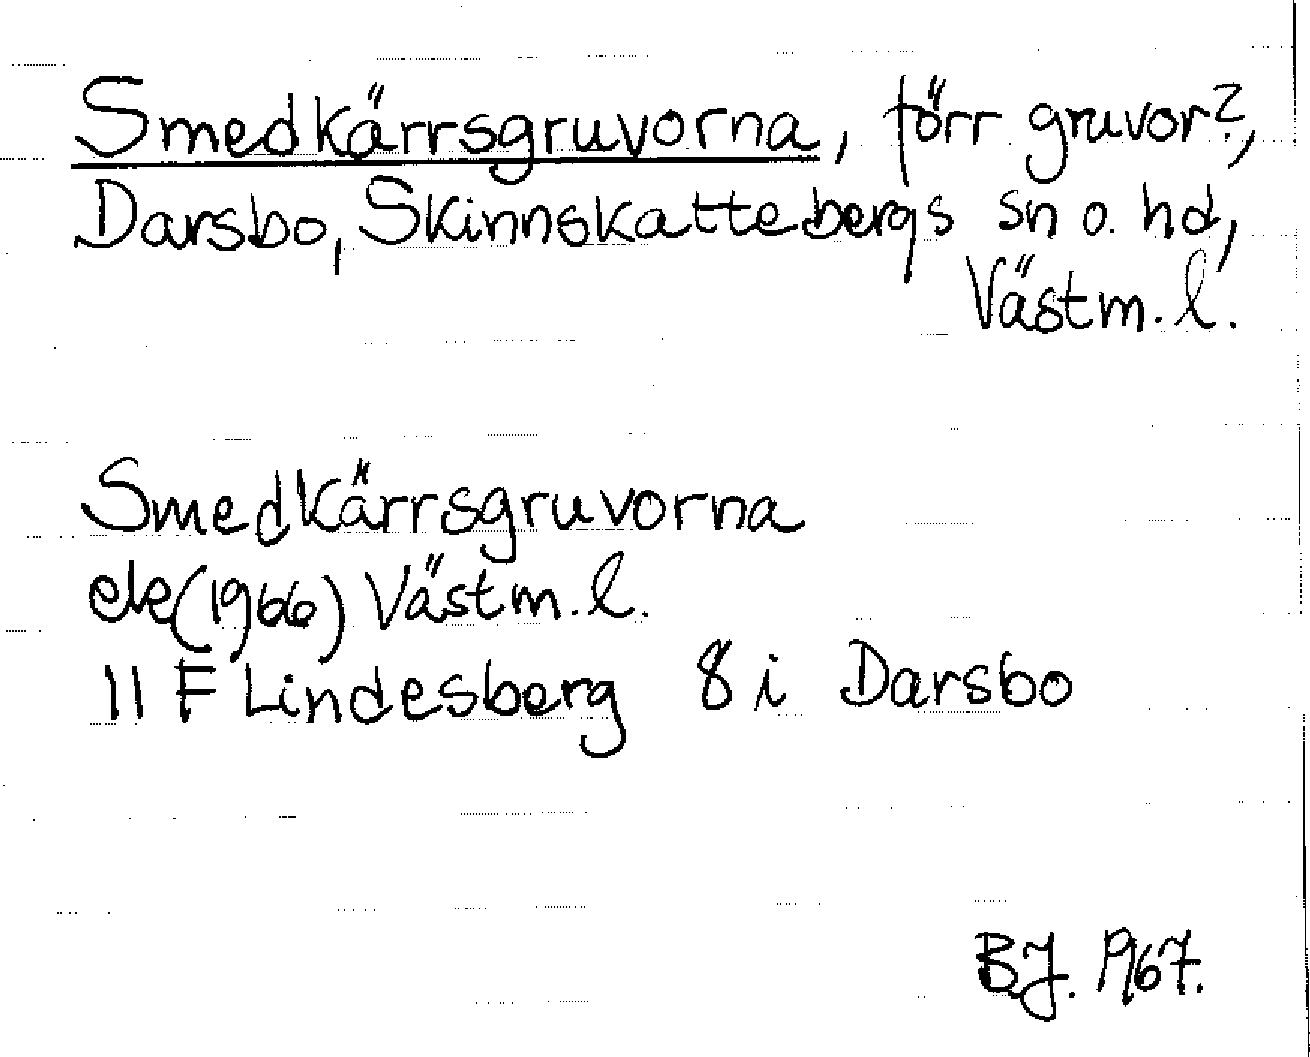 Smedkärrsgruvorna, förr gruvor?,
Darsbo, Skinnskattebergs sn o. hd,
Västm. l.
Smedkärrsgruvorna
ek (1966) Västm. l.
11 F Lindesberg 8 i Darsbo
B.J. 1967.